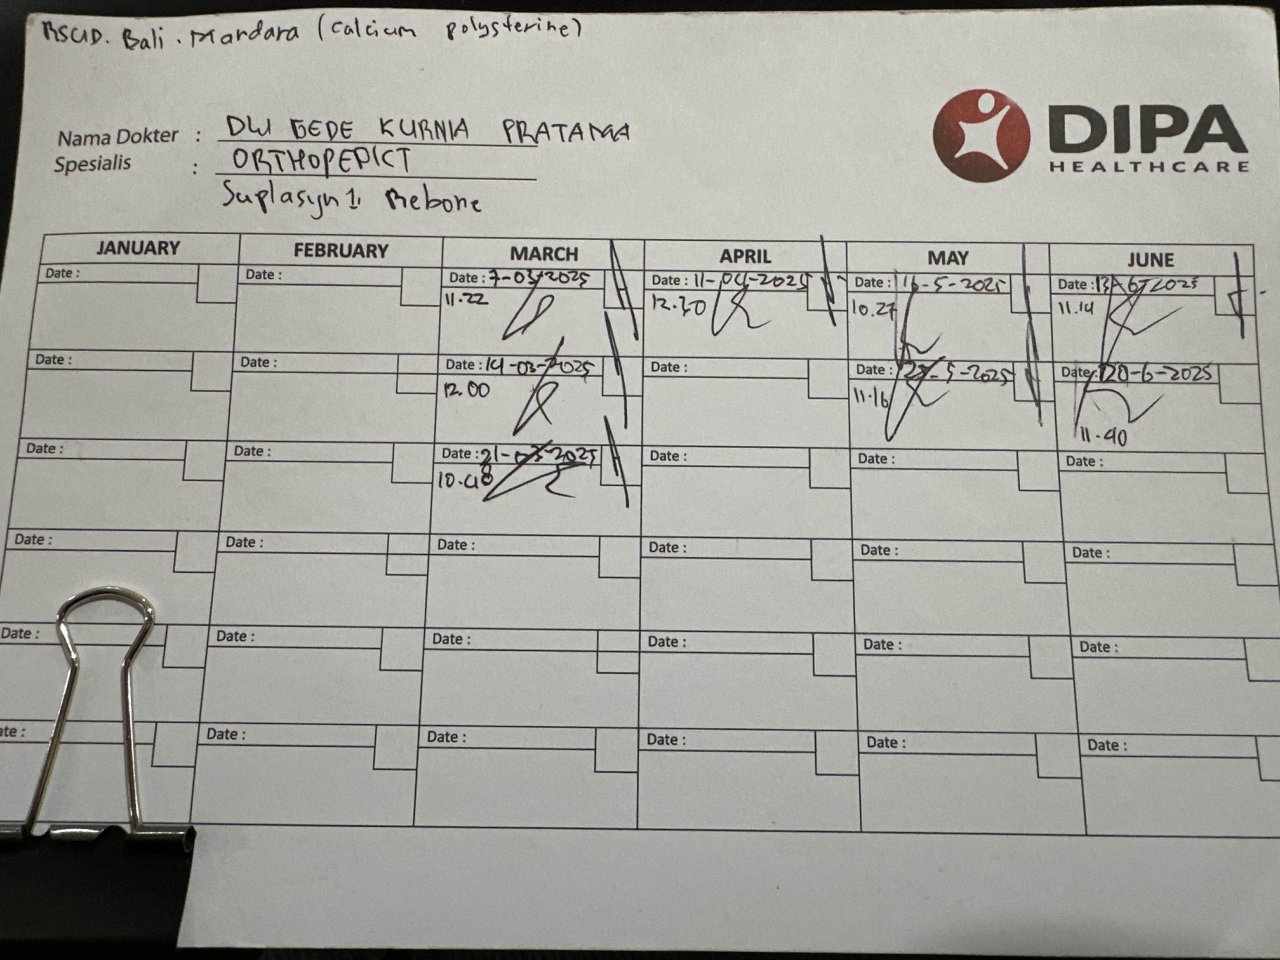 RSUD. Bali. Mandara (calcium polysterine)
DIPA
HEALTHCARE
Nama Dokter : DW GEDE KURNIA PRATAMA
Spesialis : ORTHOPEDICT
Suplasyn 1, Rebone
JANUARY FEBRUARY MARCH APRIL MAY JUNE
Date : Date : Date : 7-03-2025 Date : 11-04-2025 Date : 16-5-2025 Date : 13-6-2025
11.22 12.30 10.27 11.14
Date : Date : Date : 14-03-2025 Date : Date : 23-5-2025 Date : 20-6-2025
12.00 11.16 11.40
Date : Date : Date : 21-03-2025 Date : Date : Date :
10.48
Date : Date : Date : Date : Date : Date :
Date : Date : Date : Date : Date : Date :
ate : Date : Date : Date : Date : Date :